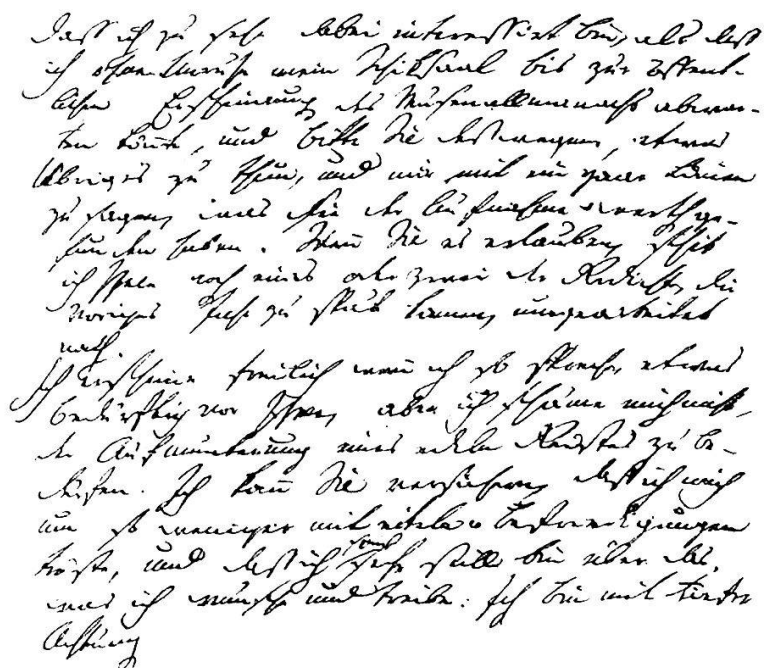 daß ich zu sehr dabei interessirt bin, als daß
ich ohne Unruhe mein Schiksaal bis zur öffent-
lichen Erscheinung des Musenallmanachs abwar-
ten könnte, und bitte Sie deßwegen, etwas
Übriges zu thun, und mir mit ein paar Linien
zu sagen, was Sie der Aufnahme werth ge-
funden haben. Wenn Sie es erlauben, schik
ich Ihnen noch eines oder zwei der Gedichte, die
voriges Jahr zu spät kamen, umgearbeitet
nach.
Ich erscheine freilich, wenn ich so spreche, etwas
bedürftig vor Ihnen, aber ich schäme mich nicht,
der Aufmunterung eines edeln Geistes zu be-
dürfen. Ich kann Sie versichern, daß ich mich
um so weniger mit eiteln Befriedigungen
tröste, und daß ich sonst sehr still bin über das,
was ich wünsche und treibe. Ich bin mit tiefer
Achtung